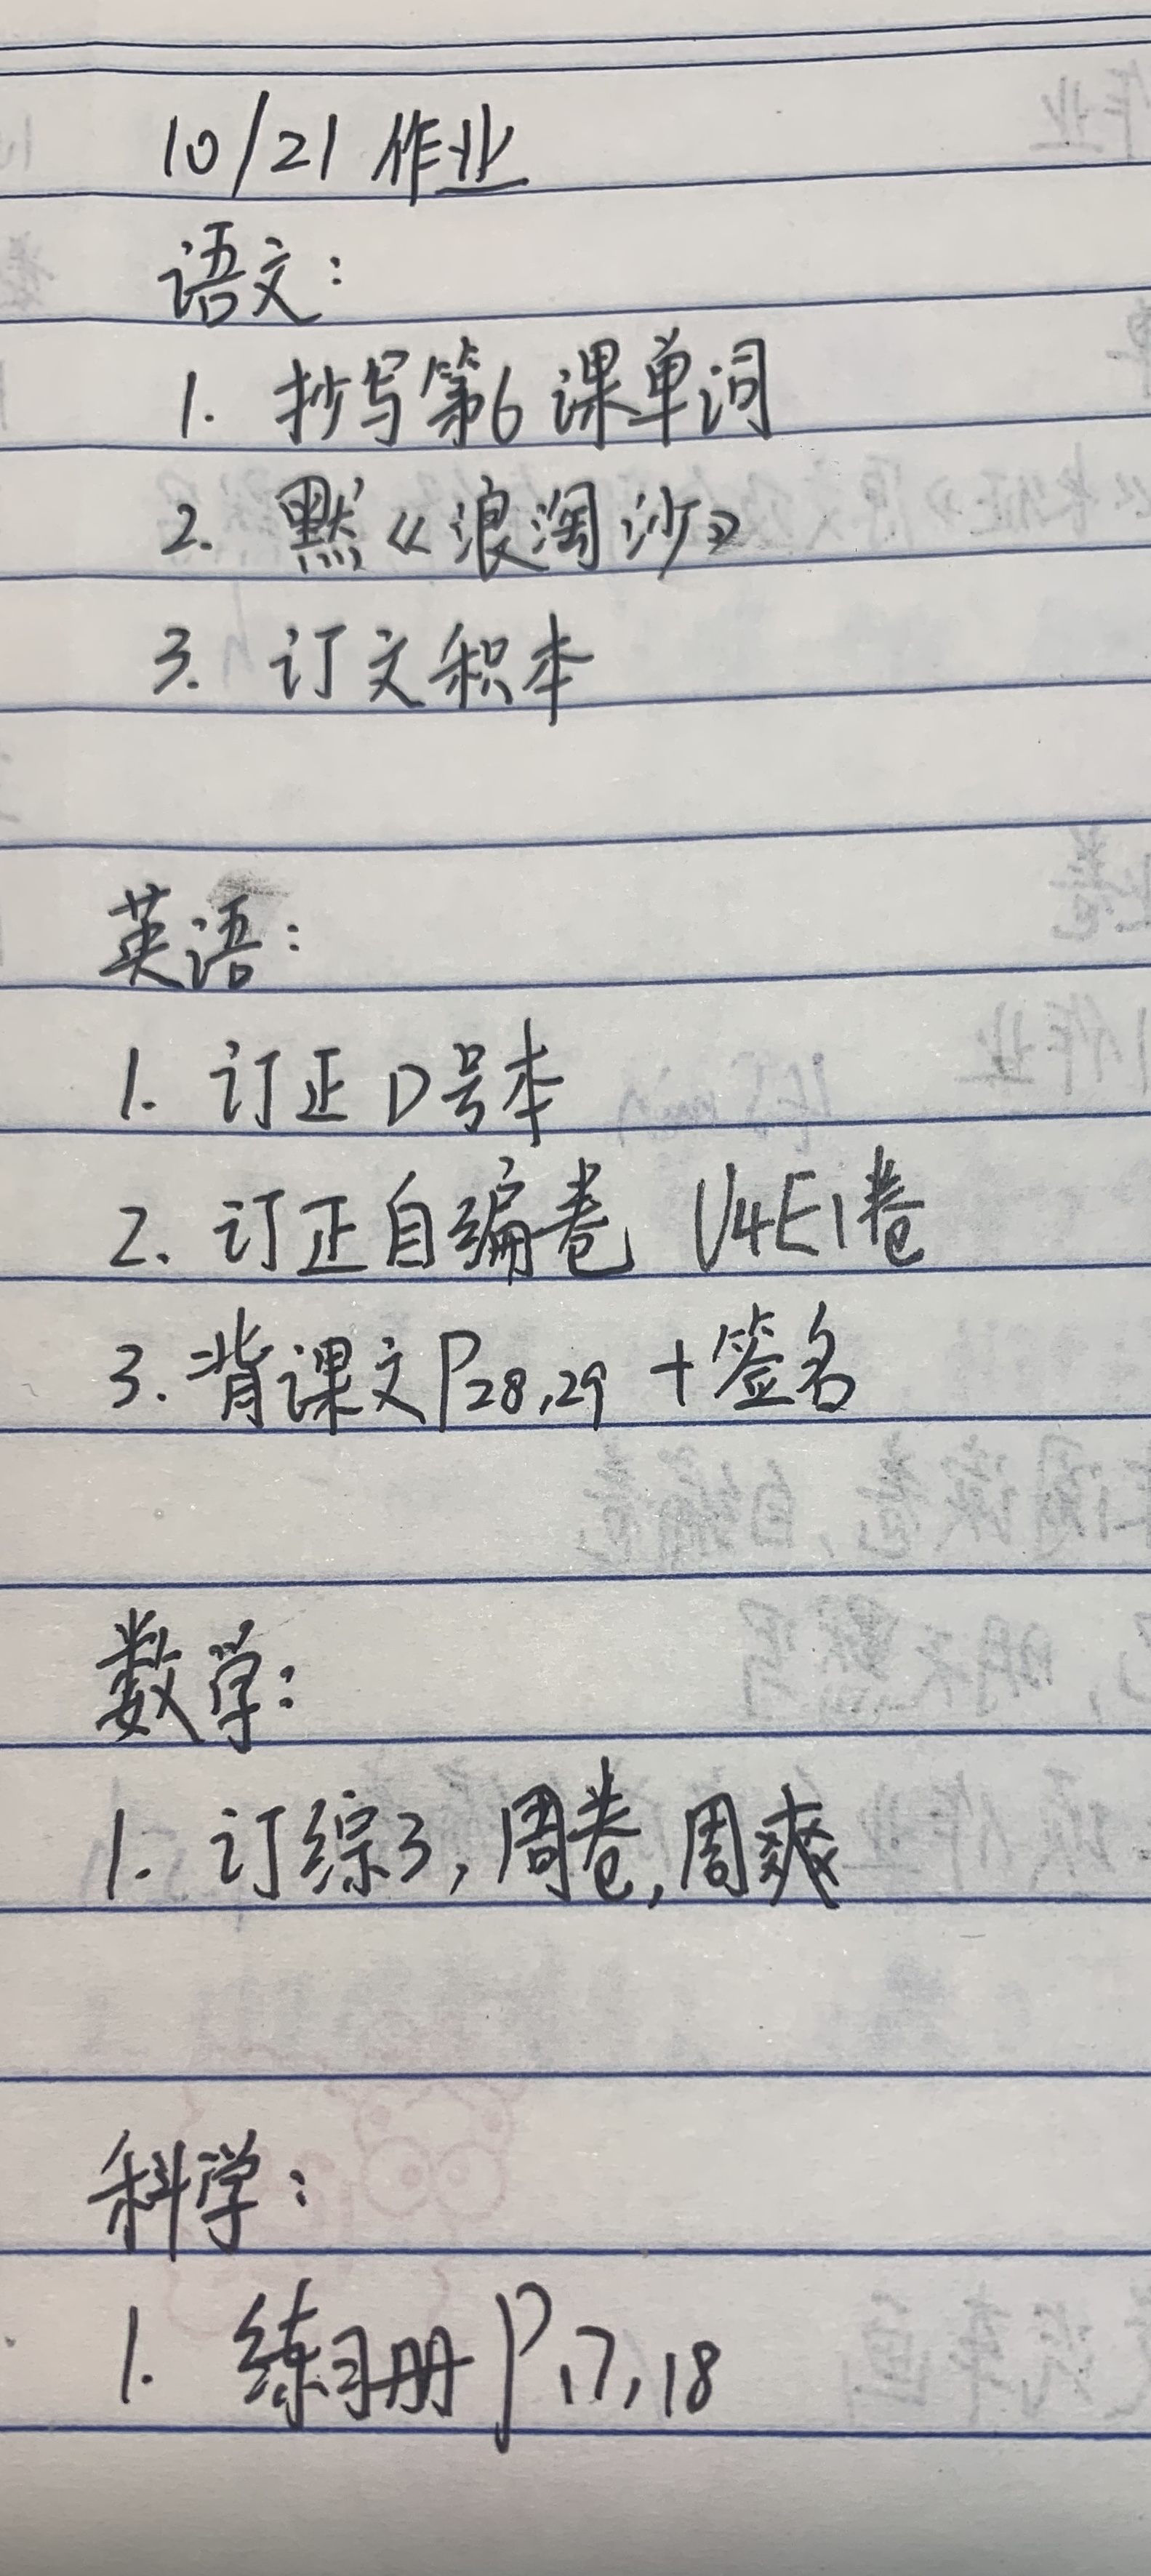 10/21 作业
语文：
1. 抄写第6课单词
2. 默《浪淘沙》
3. 订文积本
英语：
1. 订正D号本
2. 订正自编卷 U4E1卷
3. 背课文P28,29 +签名
数学：
1. 订综3,周卷,周爽
科学：
1. 练习册P17,18